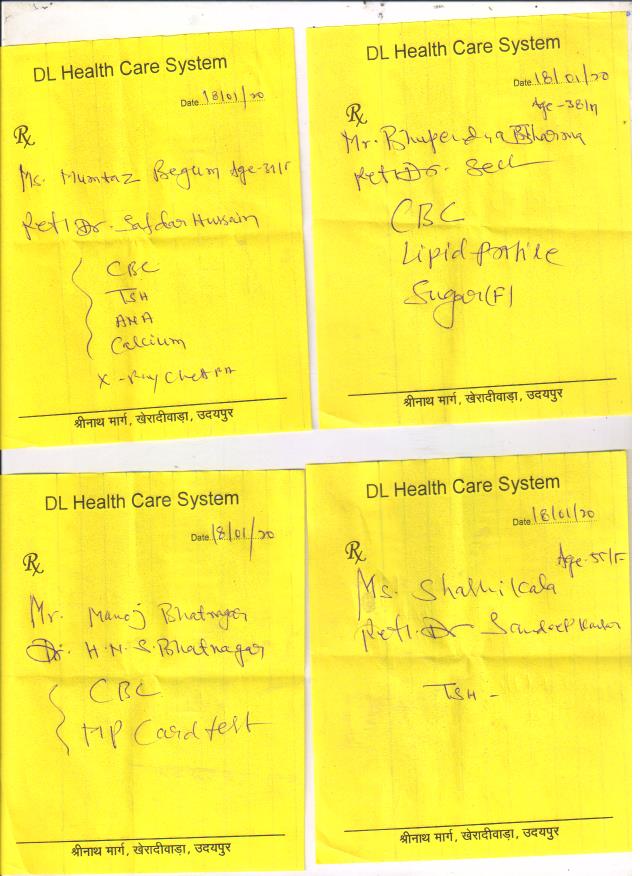 DL Health Care System
Date 18/01/20
Rx
Ms. Mumtaz Begum Age-31/F
Ref/Dr. Safdar Hussain
CBC
TSH
ANA
Calcium
X-Ray Chest PA
श्रीनाथ मार्ग, खेरादीवाड़ा, उदयपुर
DL Health Care System
Date 18/01/20
Age-38/M
Rx
Mr. Bhupendra Sharma
Ref/Dr. Self
CBC
Lipid Profile
Sugar(F)
श्रीनाथ मार्ग, खेरादीवाड़ा, उदयपुर
DL Health Care System
Date 18/01/20
Rx
Mr. Manoj Bhatnagar
Dr. H.N.S. Bhatnagar
CBC
MP Card test
श्रीनाथ मार्ग, खेरादीवाड़ा, उदयपुर
DL Health Care System
Date 18/01/20
Rx
Age-55/F
Ms. Shashikala
Ref/. Dr
TSH -
श्रीनाथ मार्ग, खेरादीवाड़ा, उदयपुर